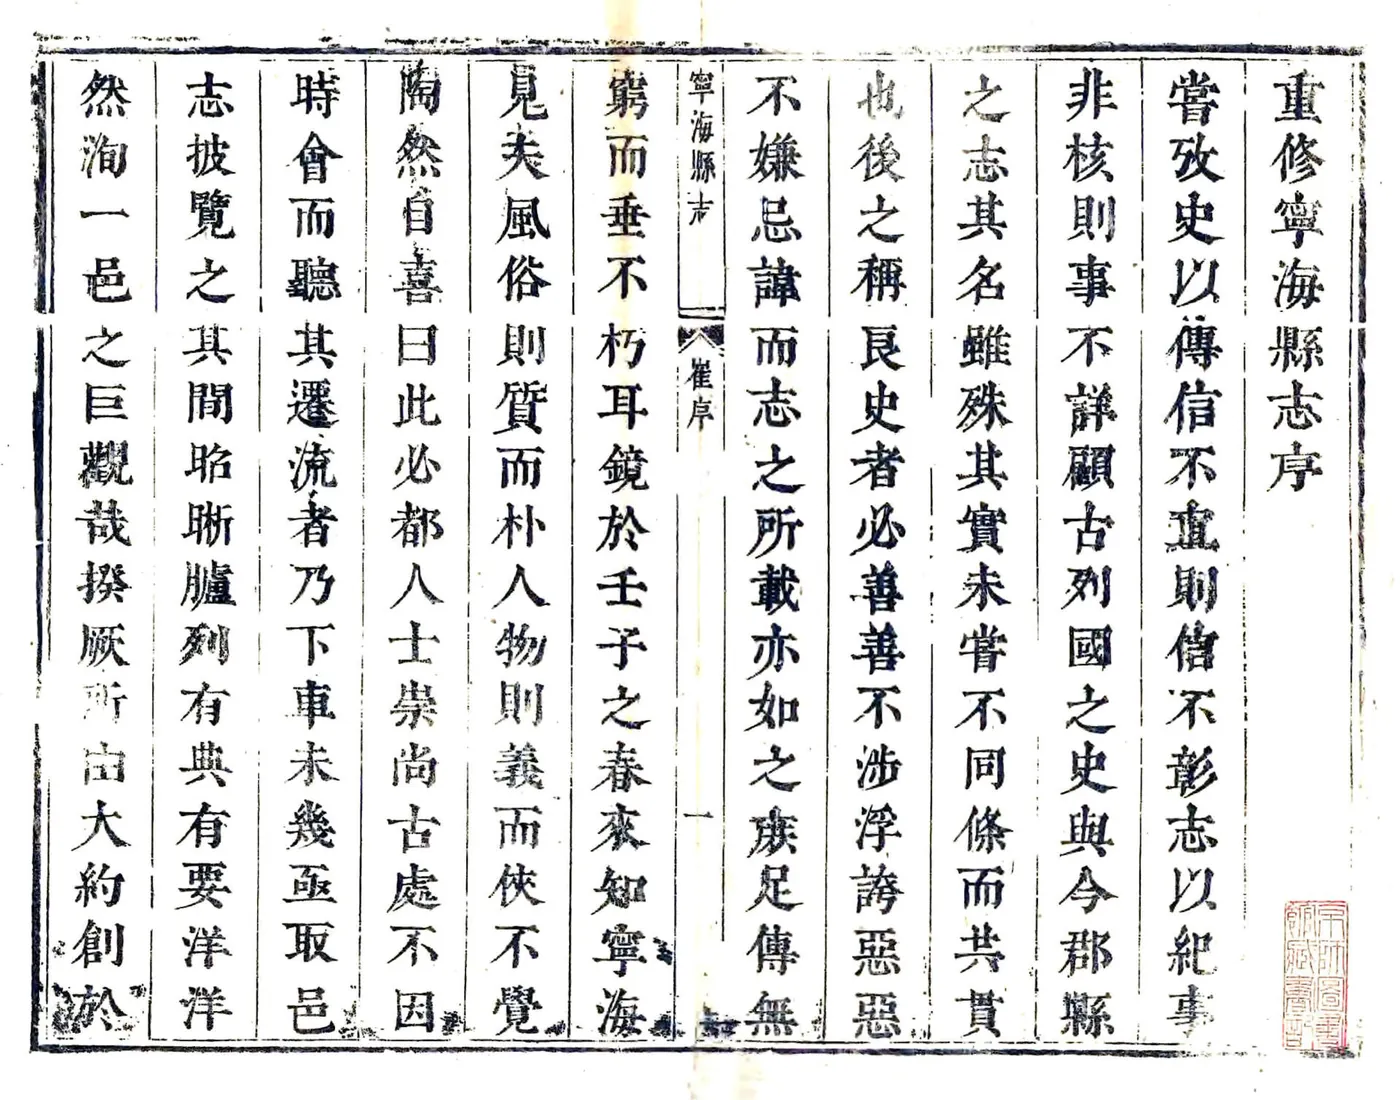 重修寧海縣志序
嘗攷史以傳信不直則信不彰志以紀事
非核則事不詳顧古列國之史與今郡縣
之志其名雖殊其實未嘗不同條而共貫
也後之稱良史者必善善不涉浮誇惡惡
不嫌忌諱而志之所載亦如之庶足傳無
寧海縣志
崔序
一
窮而垂不朽耳鏡於壬子之春來知寧海
見夫風俗則質而朴人物則義而俠不覺
陶然自喜曰此必都人士崇尚古處不因
時會而聽其遷流者乃下車未幾亟取邑
志披覽之其間昭晰臚列有典有要洋洋
然洵一邑之巨觀哉揆厥所由大約創於